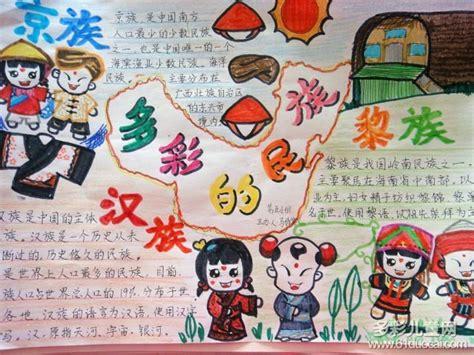 京族
京族，是中国南方
人口最少的少数民族
之一，也是中国唯一的一个
海滨渔业少数民族、海洋
民族。主要分布在
广西壮族自治区
境内
多彩的民族
黎族
黎族是我国岭南民族之一
主要聚居在海南省中南部，以
业为主，妇女精于纺织
汉族
汉族是中国的主体
族。汉族是一个历史从未
断过的，历史悠久的民族，
是世界上人口最多的民族，目前，
族人口占世界总人口的19%，分布于世
各地，汉族的语言为汉语，使用汉字
写。汉，原指天河、宇宙、银河。
多彩儿童网
www.61duocai.com